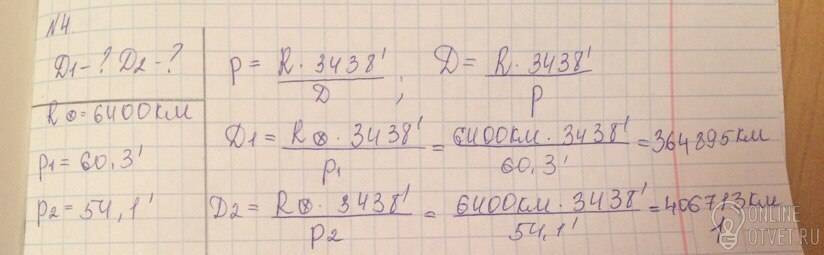 N4.
D1-? D2-?
R⊗=6400км
p1=60,3'
p2=54,1'
p = R · 3438' / D ; D = R · 3438' / p
D1 = R⊗ · 3438' / p1 = 6400км · 3438' / 60,3' = 364895км
D2 = R⊗ · 3438' / p2 = 6400км · 3438' / 54,1' = 406713км
ONLINE
OTVET.RU